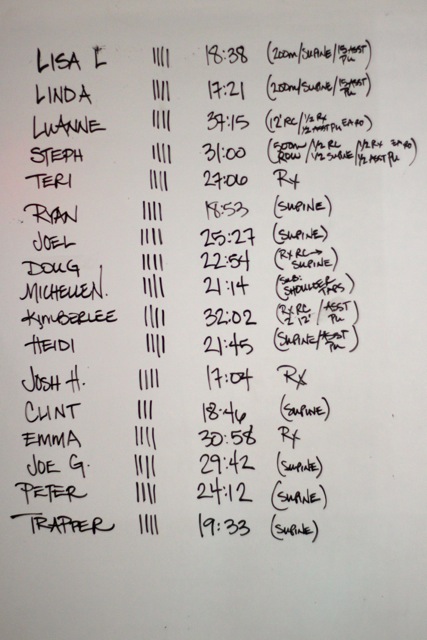 LISA L IIII 18:38 (200m/SUPINE/15 ASST PU)
LINDA IIII 17:21 (200m/SUPINE/15 ASST PU)
LUANNE IIII 37:15 (12' RC/1/2 RX 1/2 ASST PU EA RD)
STEPH IIII 31:00 (500m ROW/1/2 RC 1/2 SUPINE/1/2 RX EA RD 1/2 ASST PU)
TERI IIII 27:06 RX
RYAN IIII 18:53 (SUPINE)
JOEL IIII 25:27 (SUPINE)
DOUG IIII 22:54 (RX RC → SUPINE)
MICHELLE N. IIII 21:14 (SUB: SHOULDER TAPS)
KIMBERLEE IIII 32:02 (RX RC 2 12'/ASST PU)
HEIDI IIII 21:45 (SUPINE/ASST PU)
JOSH H. IIII 17:04 RX
CLINT III 18:46 (SUPINE)
EMMA IIII 30:58 RX
JOE G. IIII 29:42 (SUPINE)
PETER IIII 24:12 (SUPINE)
TRAPPER IIII 19:33 (SUPINE)